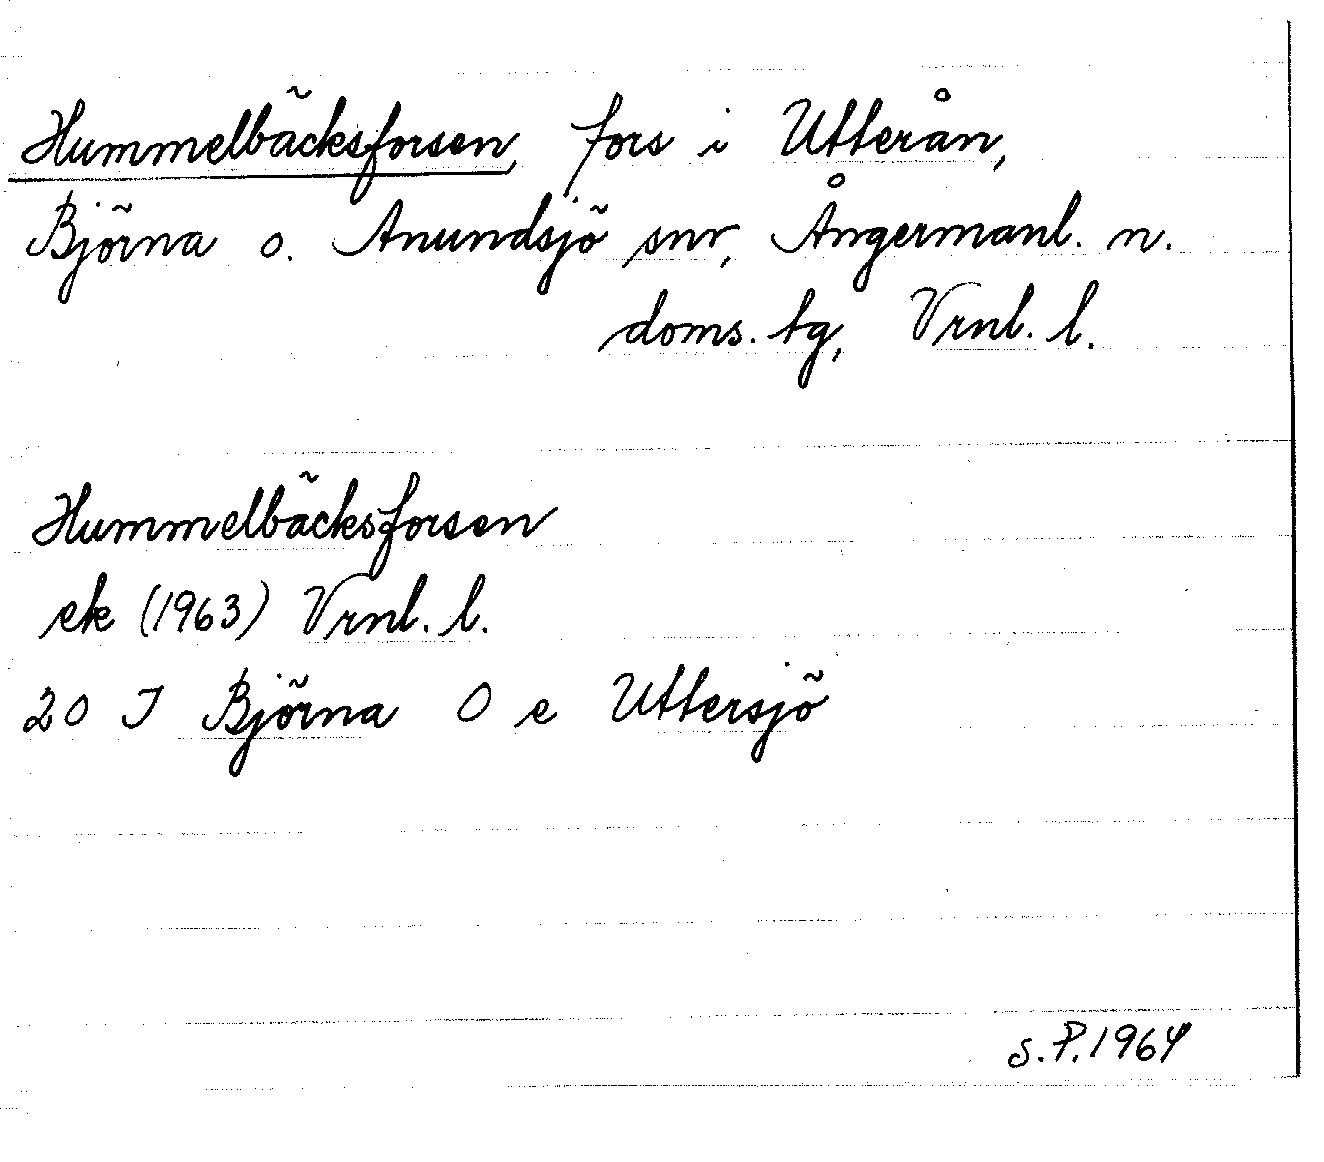 Hummelbäcksforsen, fors i Utterån,
Björna o. Anundsjö snr, Ångermanl. n.
doms. tg, Vrnl. l.
Hummelbäcksforsen
ek (1963) Vrnl. l.
20 J Björna O e Uttersjö
s.P.1964